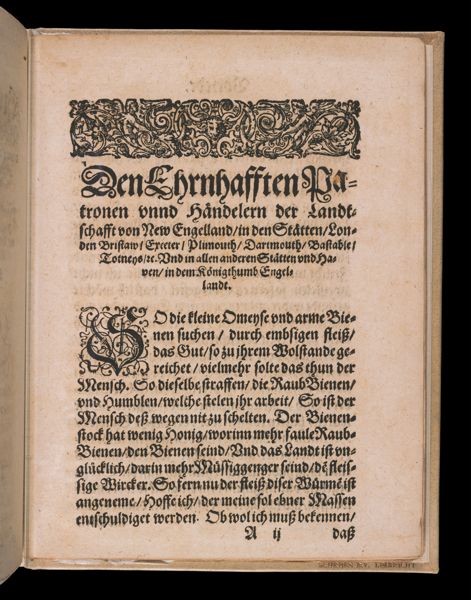 Den Ehrnhafften Pa-
tronen vnnd Händelern der Landt-
schafft von New Engelland/ in den Stätten/ Lon-
den Bristaw/ Exceter/ Plimouth/ Dartmouth/ Bastable/
Totneys/ꝛc. Vnd in allen anderen Stätten vnd Ha-
ven/ in dem Königthumb Engel-
landt.
SO die kleine Omeyse vnd arme Bie-
nen suchen / durch embsigen fleiß/
das Gut/ so zu ihrem Wolstande ge-
reichet / vielmehr solte das thun der
Mensch. So dieselbe straffen/ die Raub Bienen/
vnd Humblen/ welche stelen jhr arbeit / So ist der
Mensch deß wegen nit zu schelten. Der Bienen-
stock hat wenig Honig/ worinn mehr faule Raub-
Bienen/ den Bienen seind/ Vnd das Landt ist vn-
glücklich/ darin mehr Müssiggenger seind/ dẽ fleis-
sige Wircker. So fern nu der fleiß diser Würmẽ ist
angeneme/ Hoffe ich/ der meine sol ebner Massen
entschuldiget werden. Ob wol ich muß bekennen/
A ij daß